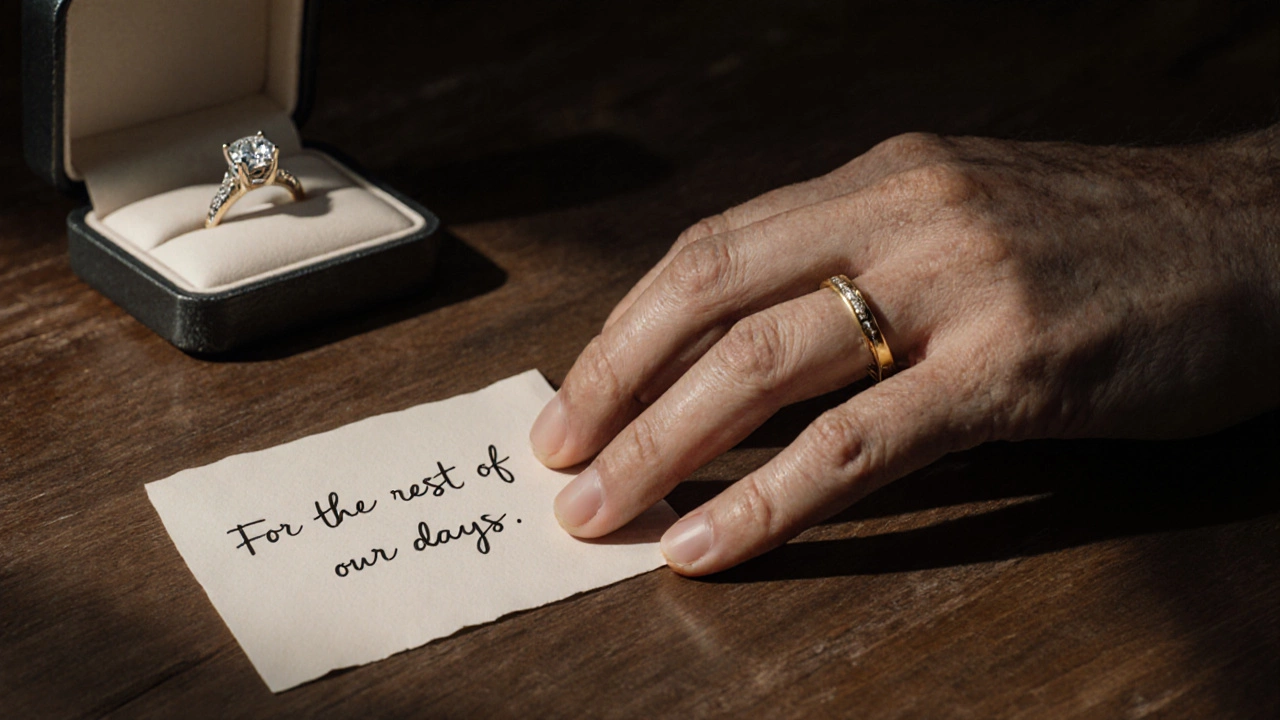 For the rest of
our days.